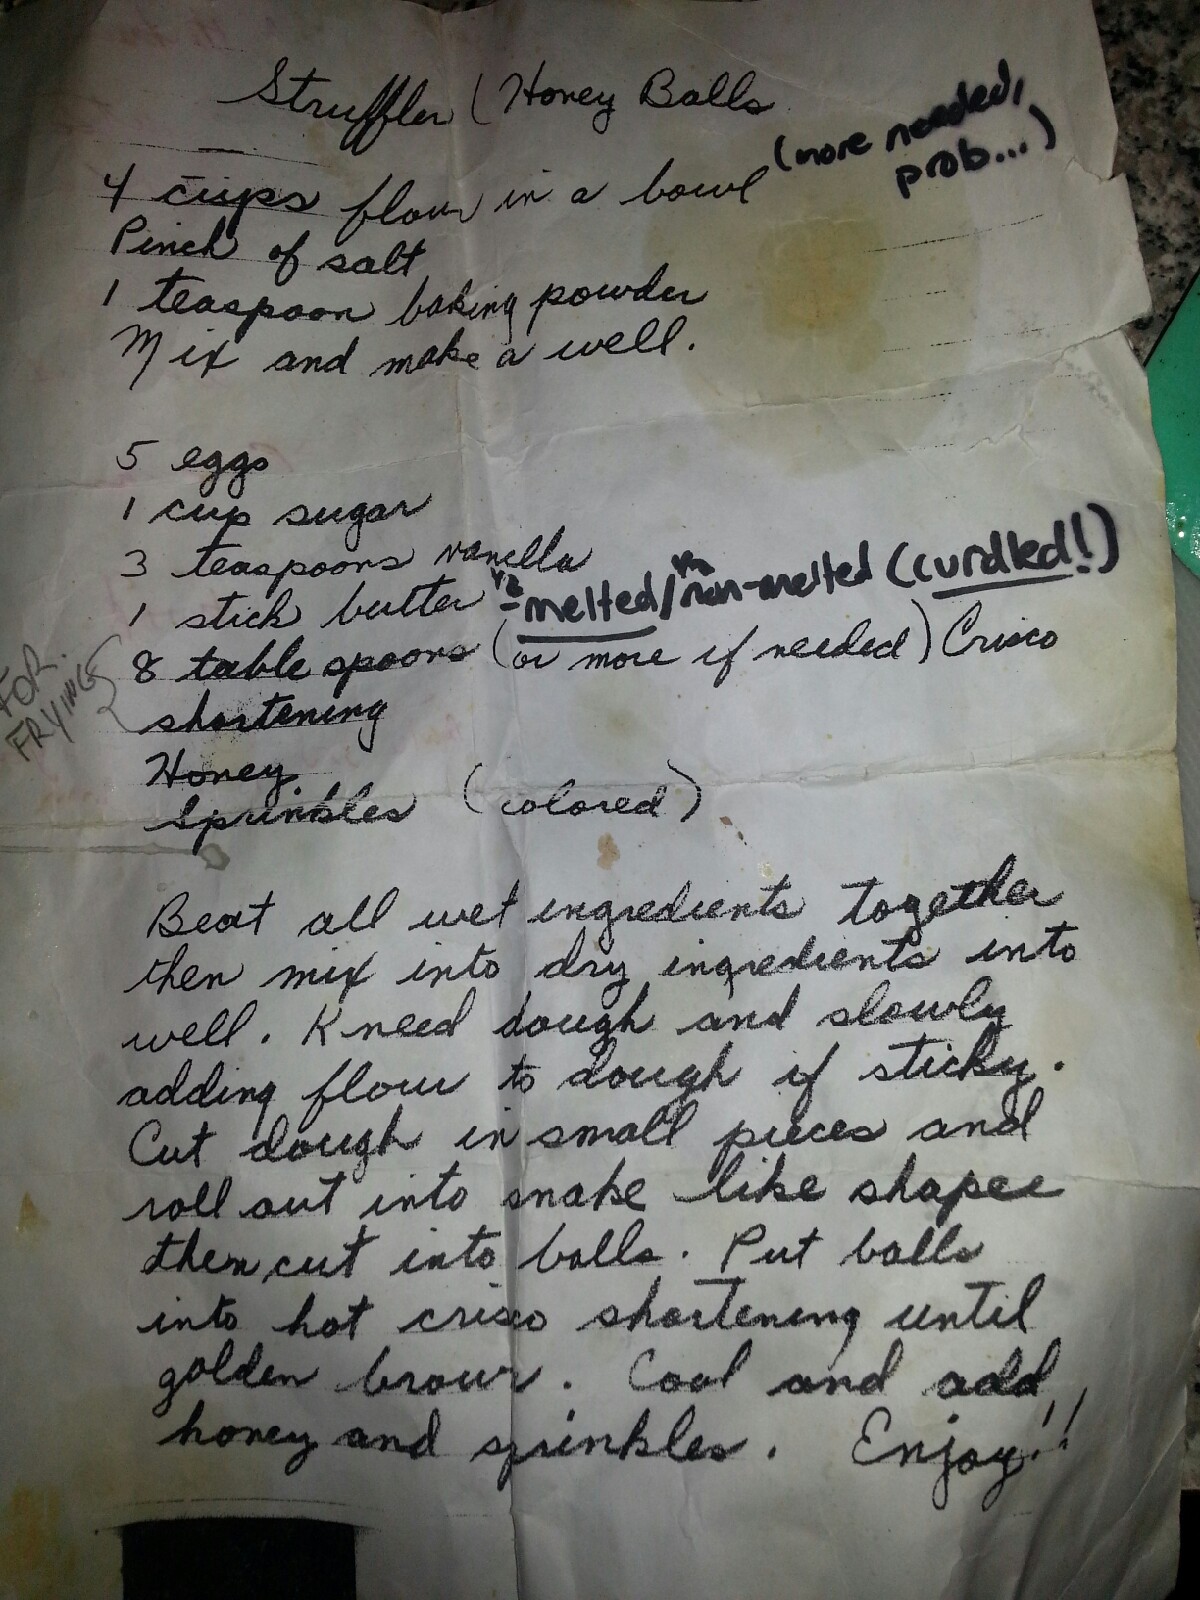 Struffler (Honey Balls
(more needed,
prob...)
4 cups flour in a bowl
Pinch of salt
1 teaspoon baking powder
Mix and make a well.
5 eggs
1 cup sugar
3 teaspoons vanilla
1 stick butter 1/2 - melted / 1/2 non-melted (curdled!)
FOR
FRYING
8 table spoons (or more if needed) Crisco
shortening
Honey
Sprinkles (colored)
Beat all wet ingredients together
then mix into dry ingredients into
well. Kneed dough and slowly
adding flour to dough if sticky.
Cut dough in small pieces and
roll out into snake like shapes
then cut into balls. Put balls
into hot crisco shortening until
golden brown. Cool and add
honey and sprinkles. Enjoy!!